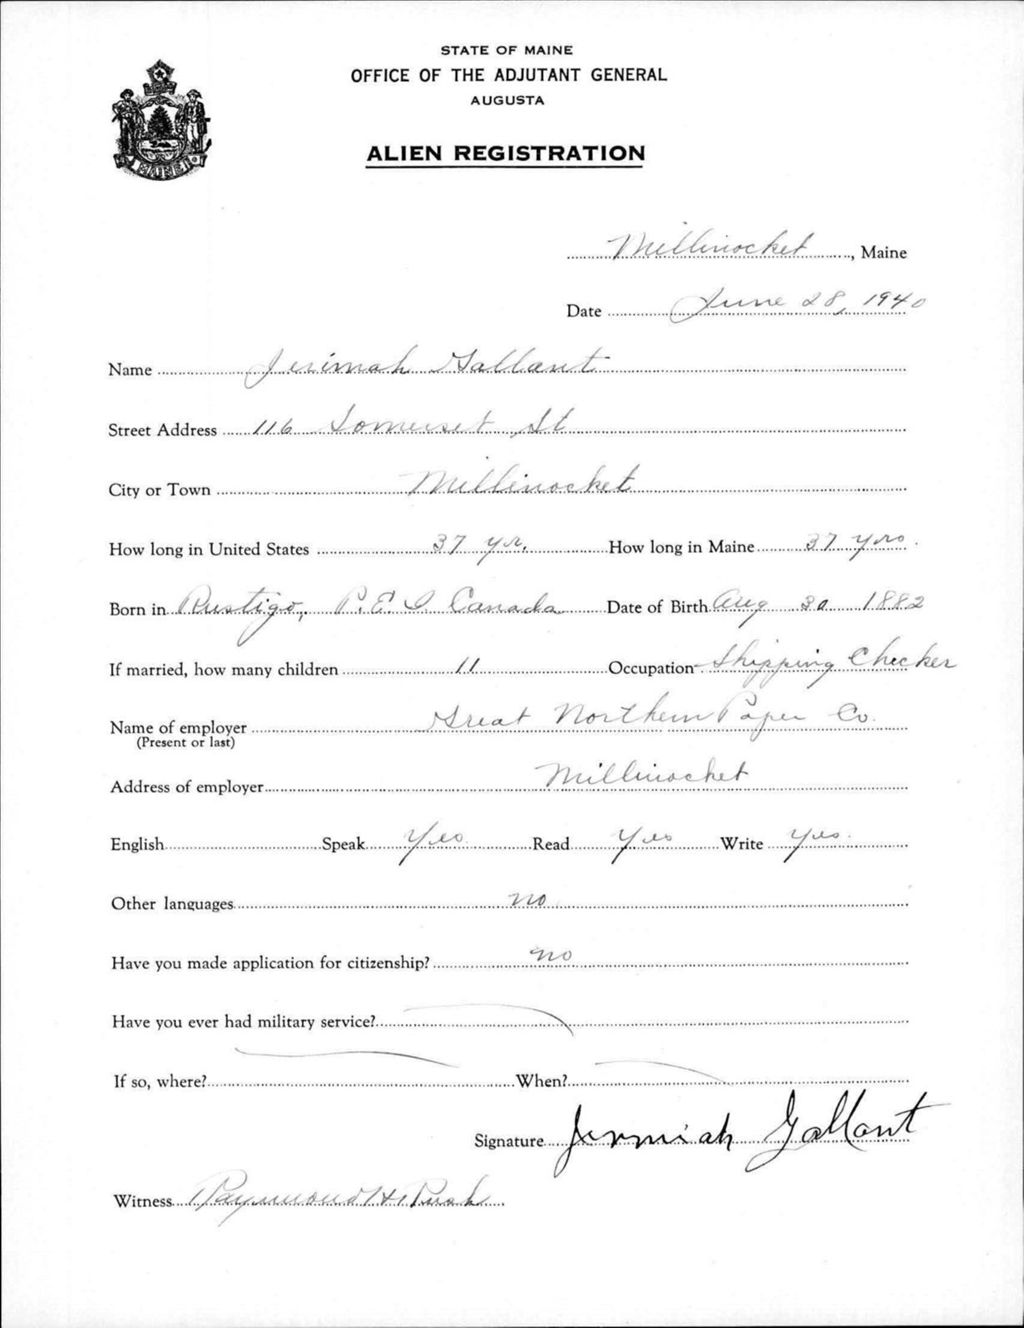 STATE OF MAINE
OFFICE OF THE ADJUTANT GENERAL
AUGUSTA
ALIEN REGISTRATION
MAINE
Millinocket, Maine
Date June 28, 1940
Name Jerimah Gallant
Street Address 116 Somerset St
City or Town Millinocket
How long in United States 37 yr. How long in Maine 37 yrs.
Born in Rustigo, P.E.I Canada Date of Birth Aug 30 1882
If married, how many children 11 Occupation Shipping Checker
Name of employer Great Northern Paper Co.
(Present or last)
Address of employer Millinocket
English Speak Yes Read Yes Write Yes
Other languages no
Have you made application for citizenship? no
Have you ever had military service?
If so, where? When?
Signature Jermiah Gallant
Witness Raymond H. Rush